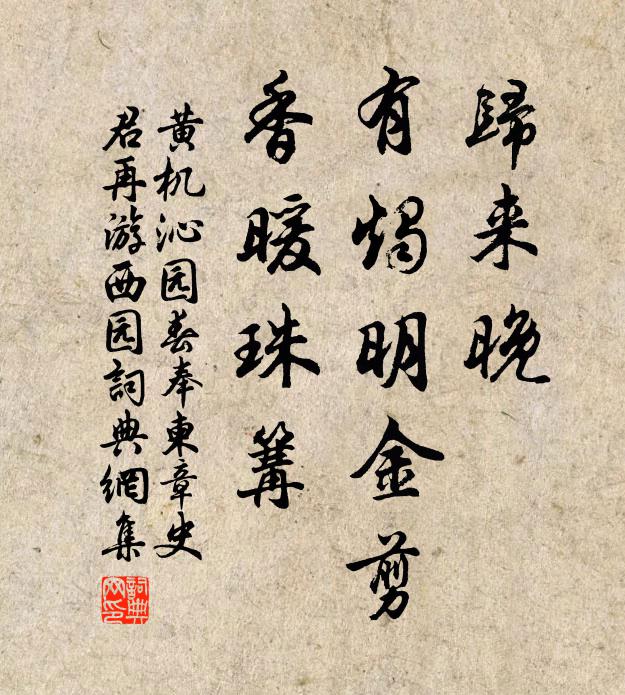 歸来晚
有燭明金剪
香暖珠篝
黄机沁园春奉柬章史
君再游西园詞典網集
詞典网印